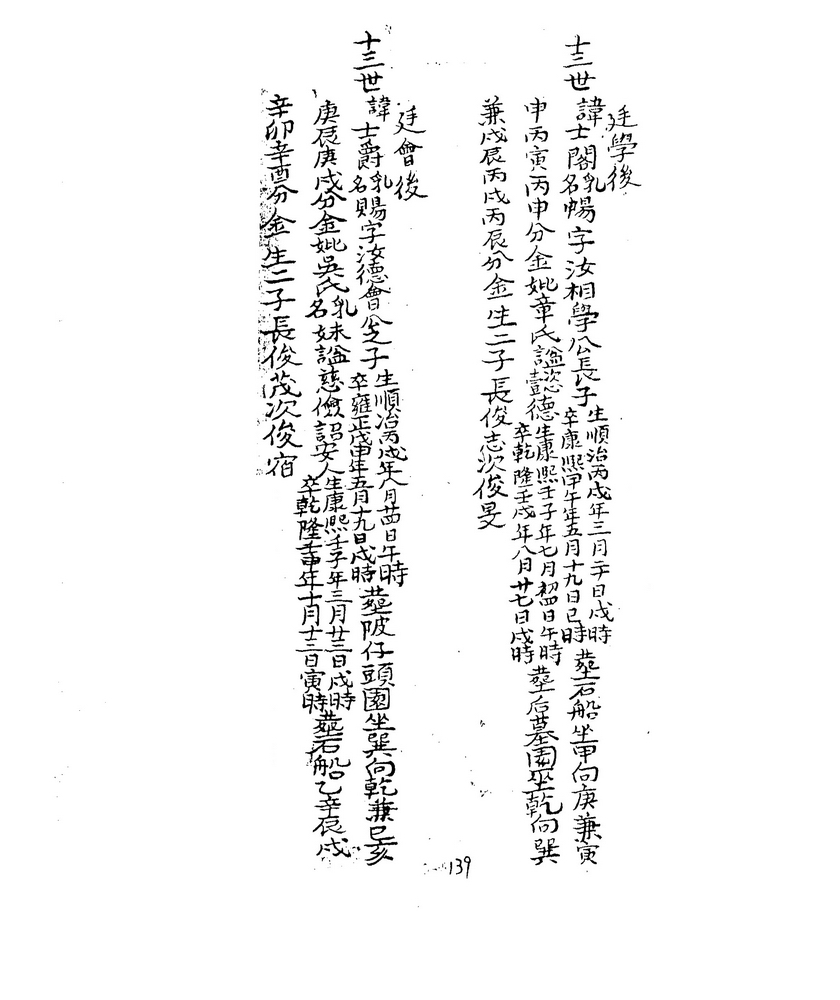 廷學後
十三世 諱士閣乳名暢字汝相學公長子生順治丙戌年三月二十日戌時卒康熙甲午年五月十九日巳時塟石船坐甲向庚兼寅
申丙寅丙申分金妣章氏謚懿德生康熙壬子年七月初四日午時卒乾隆壬戌年八月廿七日戌時塟后墓園坐乾向巽
兼戌辰丙戌丙辰分金生二子長俊志次俊旻
廷會後
十三世 諱士爵乳名賜字汝德會公之子生順治丙戌年八月廿四日午時卒雍正戊申年五月十九日戌時塟陂仔頭園坐巽向乾兼巳亥
庚辰庚戌分金妣吳氏乳名妹謚慈儉詔安人生康熙壬子年三月廿三日戌時卒乾隆壬申年十月十三日寅時塟石船乙辛辰戌
辛卯辛酉分金生二子長俊茂次俊宿
139